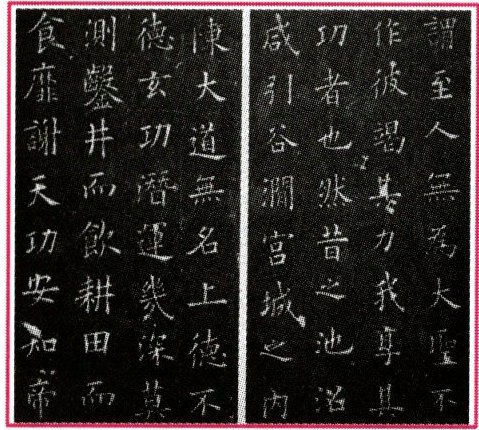 謂至人無為大聖不
作彼竭其力我享其
功者也然昔之池沼
咸引谷澗宮城之內
陳大道無名上德不
德玄功潛運幾深莫
測鑿井而飲耕田而
食靡謝天功安知帝